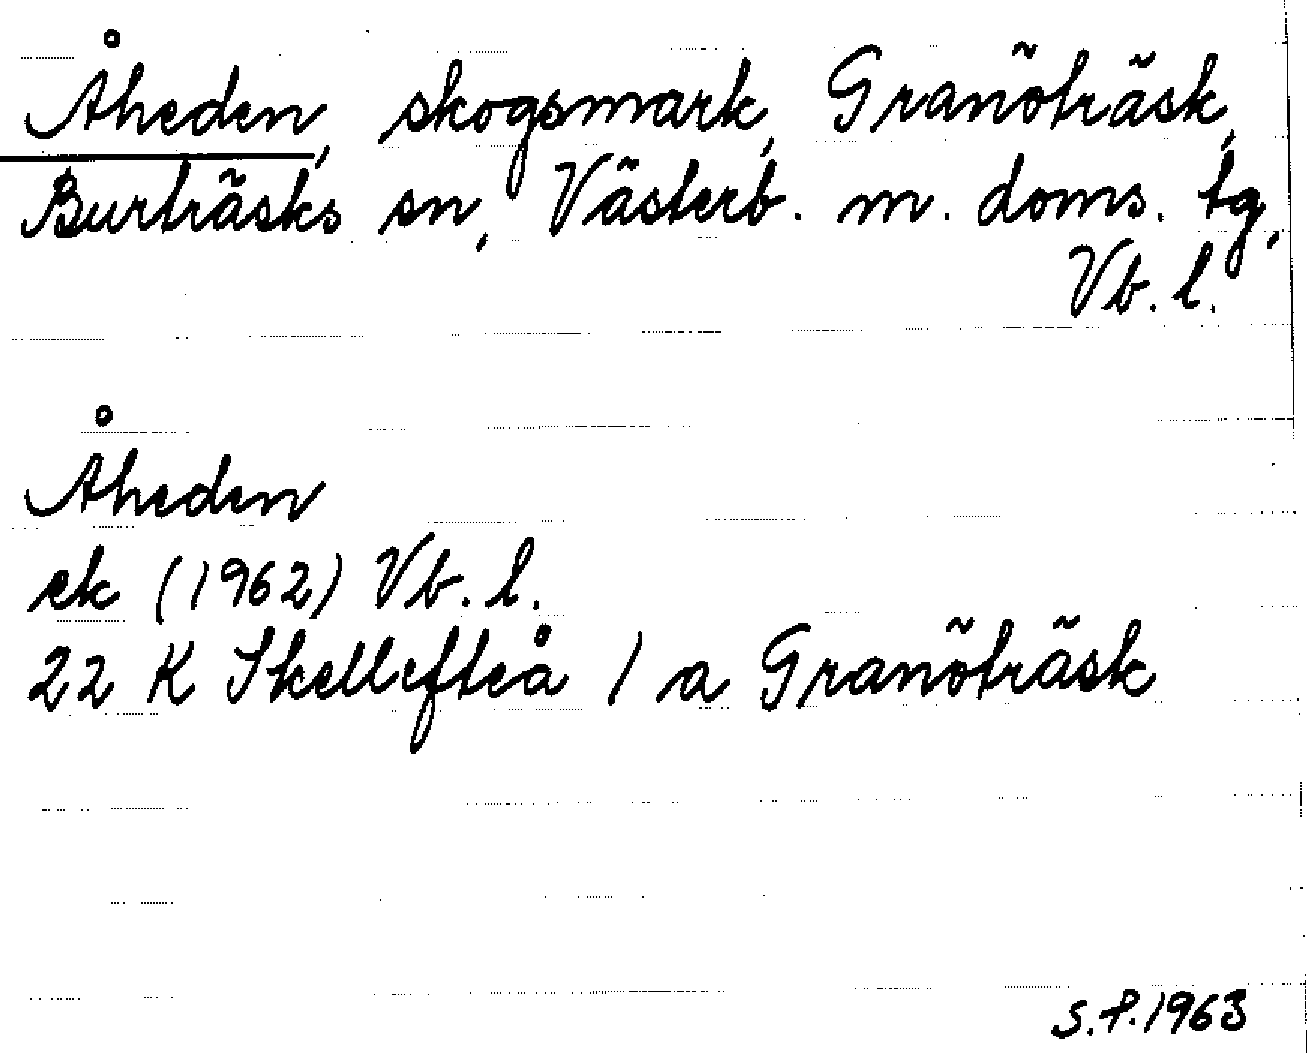 Åheden, skogsmark, Granöträsk,
Burträsks sn, Västerb. m. doms. tg,
Vb. l.
Åheden
ek (1962) Vb. l.
22 K Skellefteå / a Granöträsk
S.P. 1963